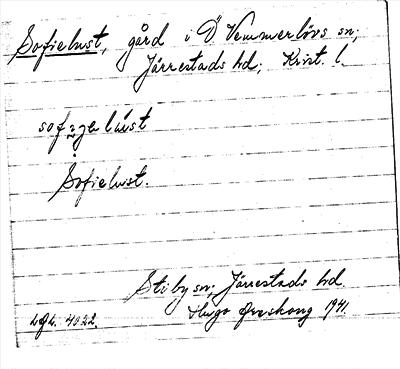 Sofielust, gård i Ö Vemmerlövs sn;
Järrestads hd; Krist. l.
Sofielust.
Stiby sn; Järrestads hd
Hugo Areskoug 1941.